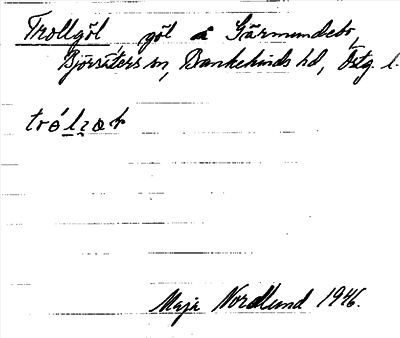 Trollgöl göl å Gärmundebo,
Björsäters sn, Bankekinds hd, Östg. l.
Maja Nordlund 1946.